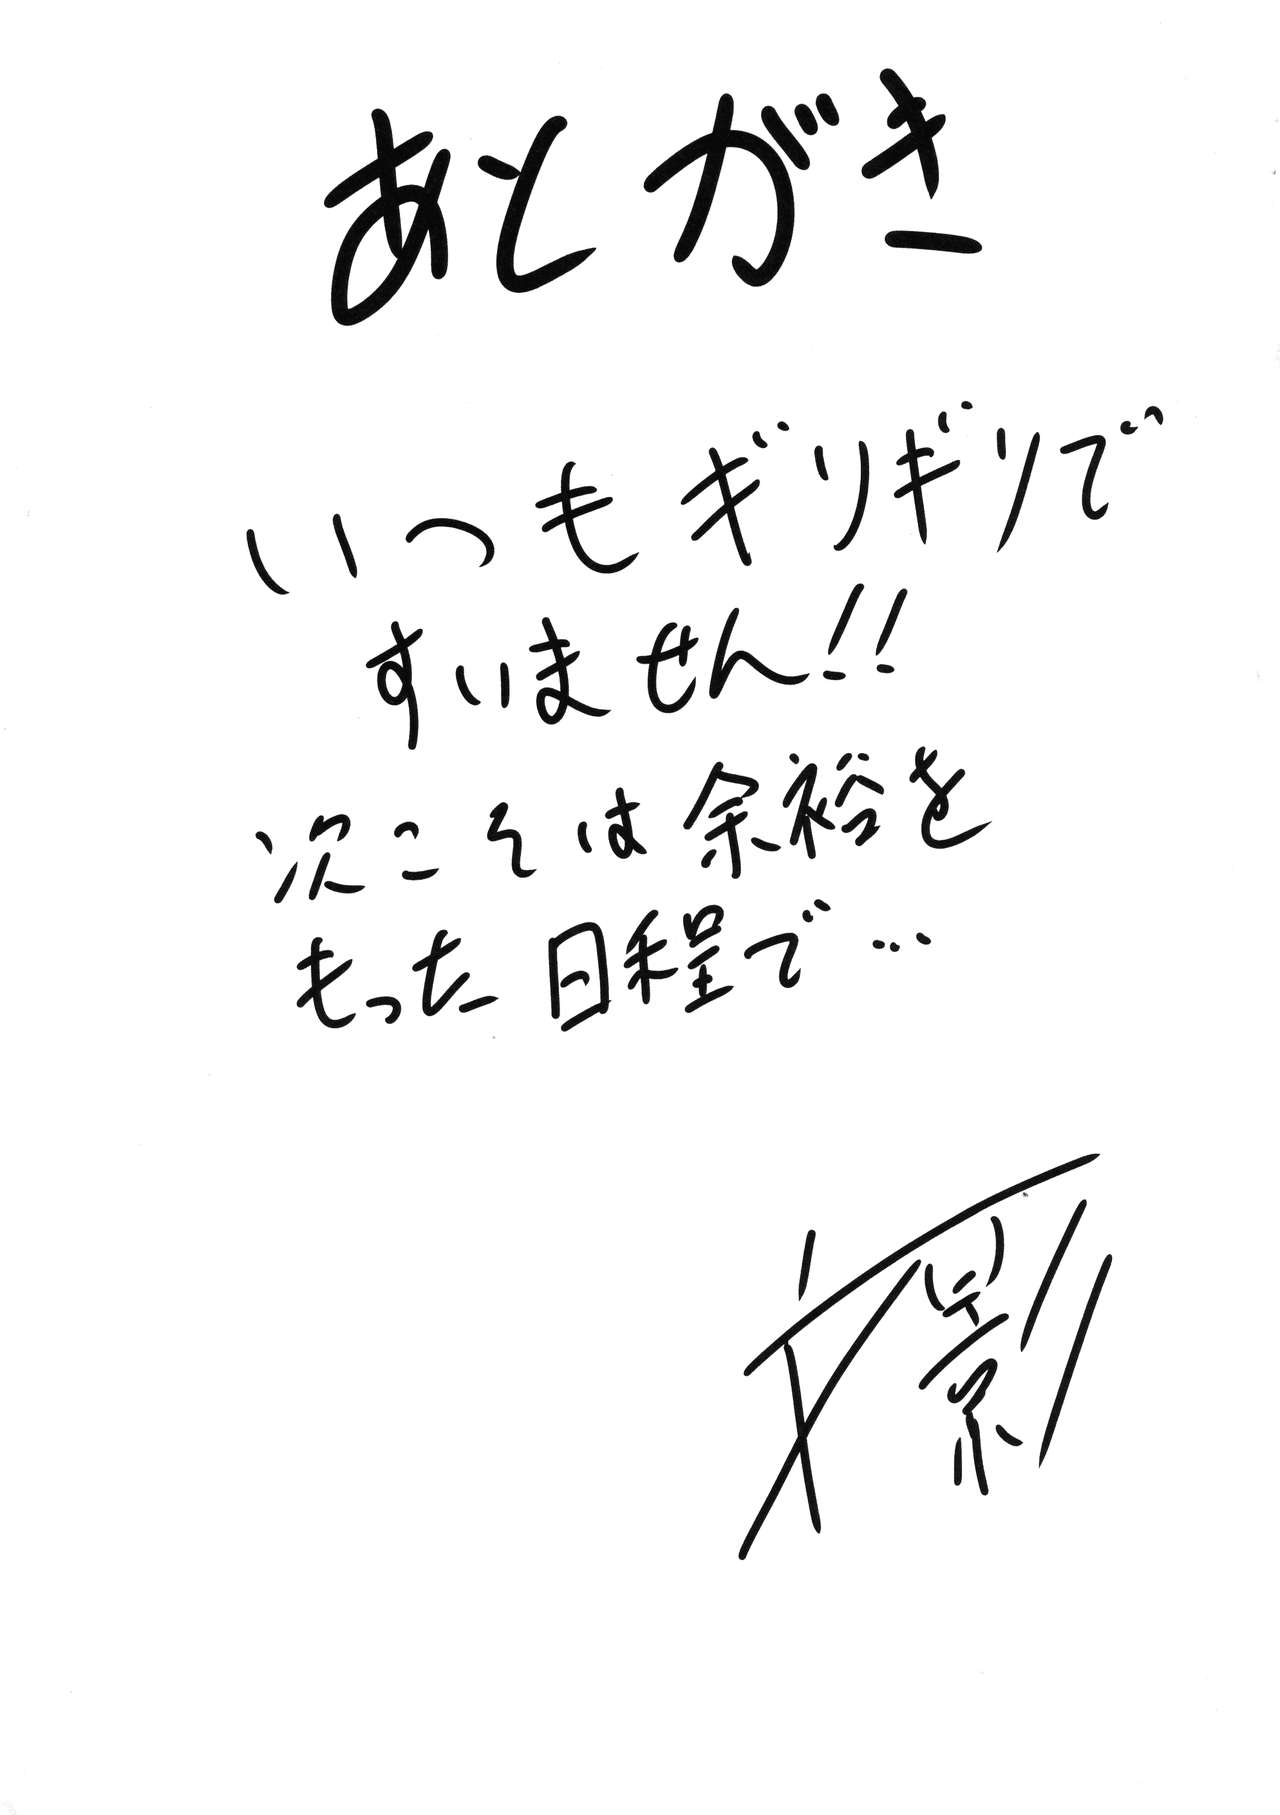 あとがき
いつもギリギリで
すいません!!
次こそは余裕を
もった日程で…
文影